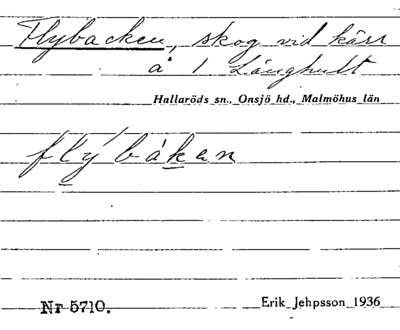 Flybacken, skog vid kärr
å 1 Långhult
Hallaröds sn., Onsjö hd., Malmöhus län
flýbàkan
Nr 5710.
Erik Jehpsson 1936